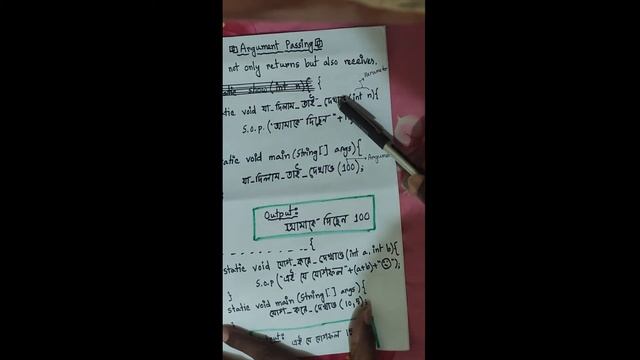 Argument Passing
not only returns but also receives.
static show (int n) { {
Parameter
static void যা_দিলাম_তাই_দেখাও (int n){
S.o.p. ("আমাকে দিছেন" +
static void main (String[] args){
Argument
যা_দিলাম_তাই_দেখাও (100);
Output:
আমাকে দিছেন 100
{
static void যোগ_করে_দেখাও (int a, int b){
S.o.p ("এই যে যোগফল"+(a+b)+"☹");
}
static void main (String[] args){
যোগ_করে_দেখাও (10,
}
এই যে যোগফল